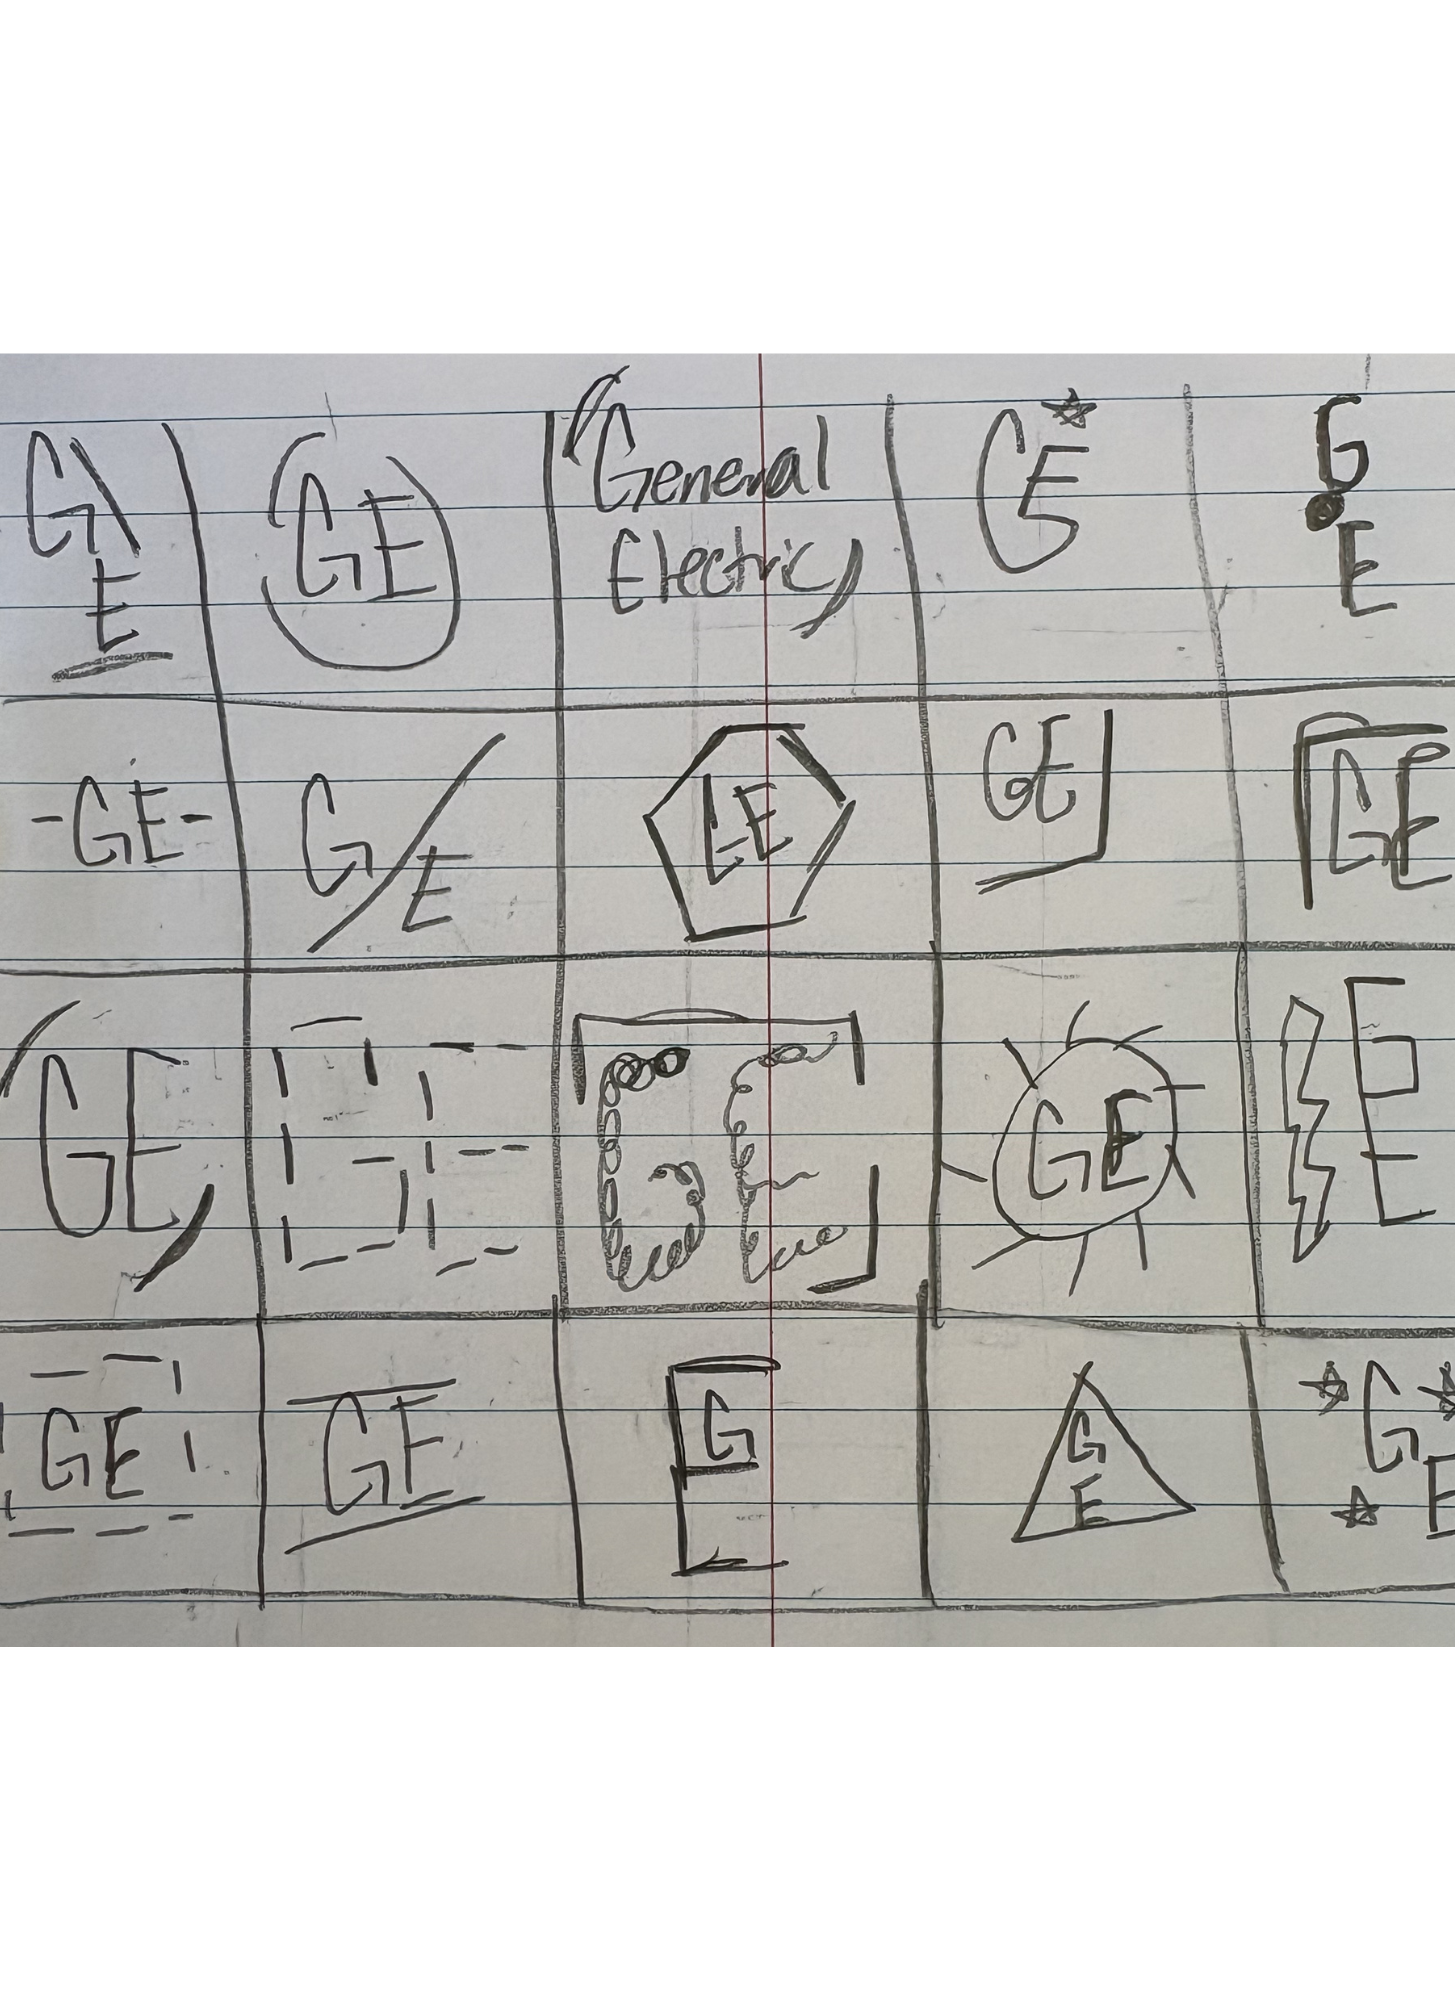 G
E
GE
General
Electric
GE
G
E
-GE-
G/E
GE
GE
GE
GE
GE
GE
GE
GE
GE
GE
G
E
G
E
G
E